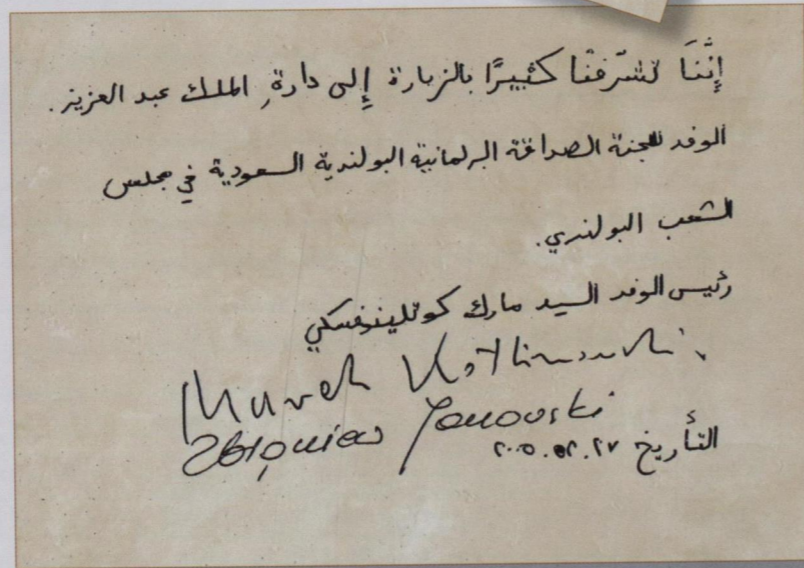 إِنَّنَا تشرّفنا كثيرًا بالزيارة إِلى دارةِ الملك عبد العزيز.
الوفد للجنة الصداقة البرلمانية البولندية السعودية في مجلس
الشعب البولندي.
رئيس الوفد السيد مارك كوتلينوفسكي
Marek Kotlinowski
Zbigniew Janowski
التأريخ ٢٠٠٥.٠٢.٢٧